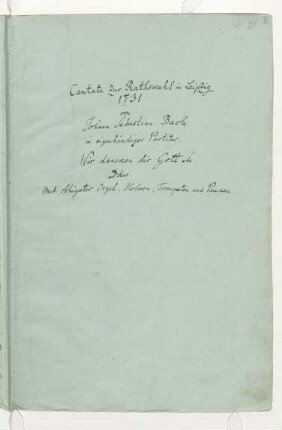 Cantate zur Rathswahl in Leipzig
1731
von
Johann Sebastian Bach
in eigenhändiger Partitur.
Wir dancken dir Gott etc.
D dur
Mit obligater Orgel, Oboen, Trompeten und Pauken.